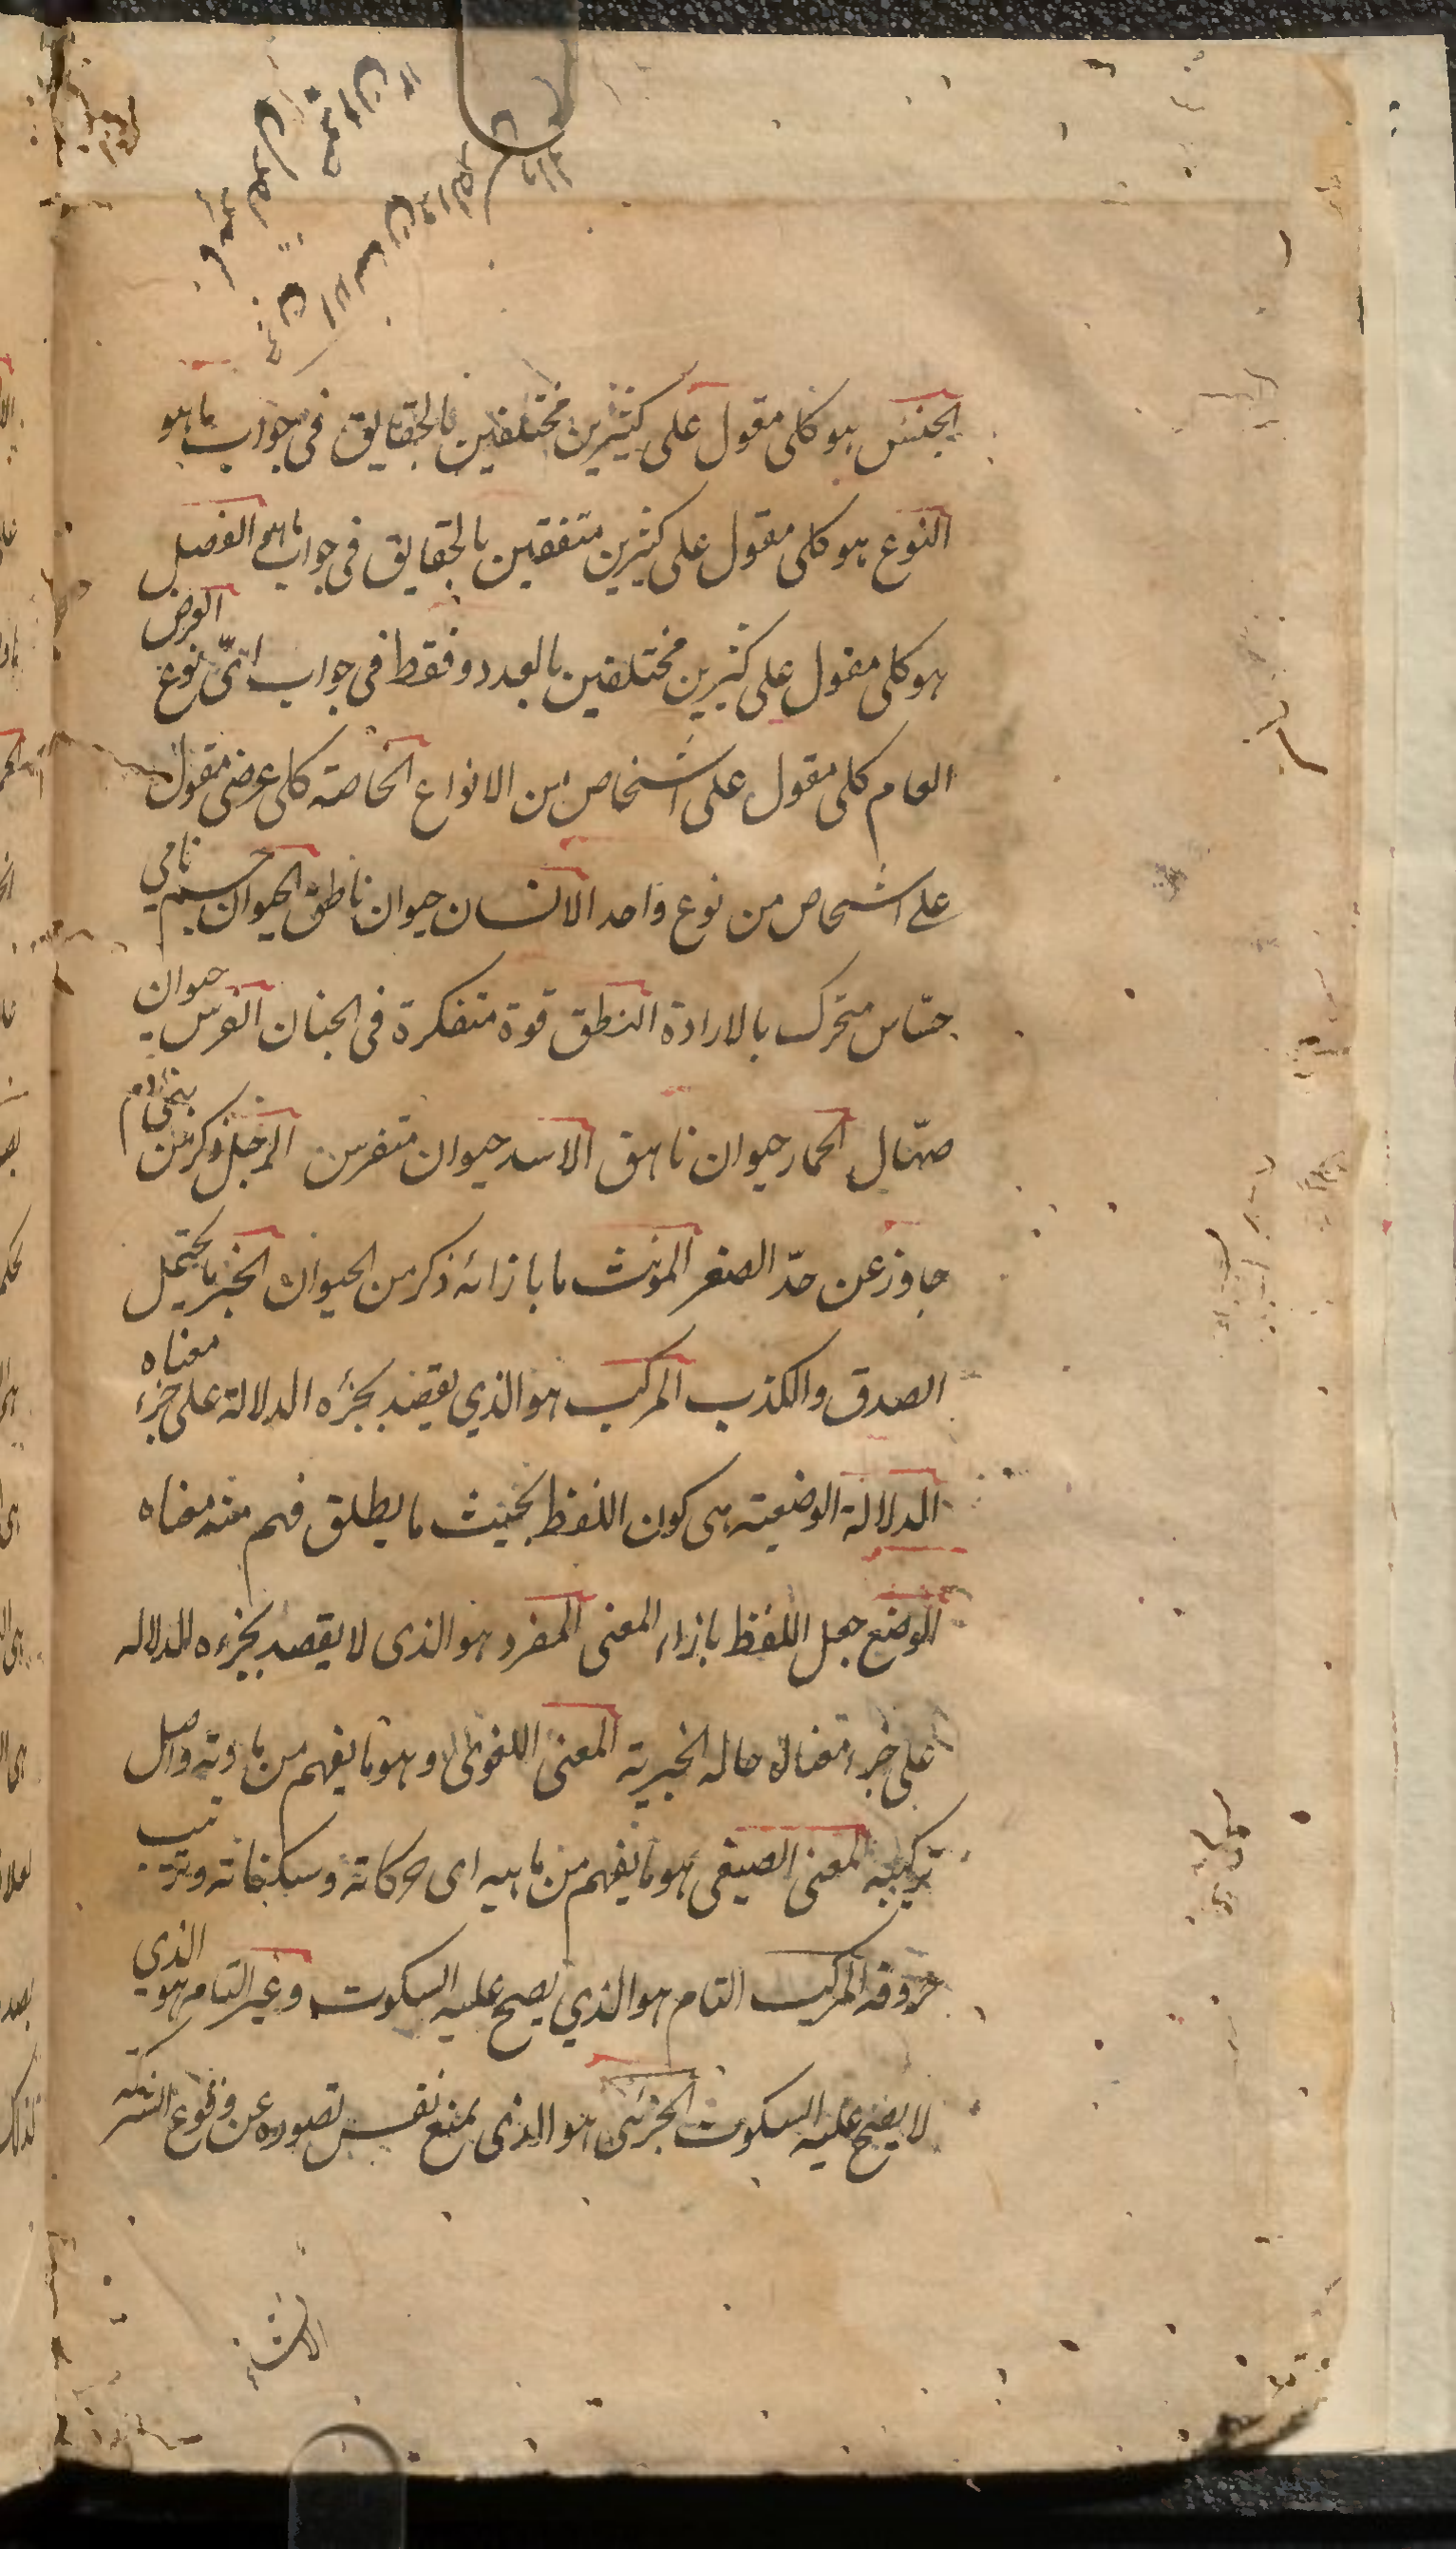 الجنس هو كلى مقول على كثيرين مختلفين بالحقايق فى جواب ماهو
النوع هو كلى مقول على كثيرين متفقين بالحقايق فى جواب ماهو الفصل
هو كلى مقول على كثيرين مختلفين بالعدد وفقط فى جواب اىّ نوع العرض
العام كلى مقول على اشخاص من الانواع الخاصة كلى عرضى مقول
على اشخاص من نوع واحد الانسان حيوان ناطق الحيوان جسم نامي
حسّاس متحرك بالارادة النطق قوة متفكرة فى الجنان الفرس حيوان
صهّال الحمار حيوان ناهق الاسد حيوان متفرس الرجل ذكر من بنى ادم
جاوز عن حدّ الصغر المؤنث ما بازائه ذكر من الحيوان الخبر ما يحتمل
الصدق والكذب المركب هو الذي يقصد بجزئه الدلالة على جزء معناه
الدلالة الوضعية هى كون اللفظ بحيث ما يطلق فهم منه معناه
الوضع جعل اللفظ بازاء المعنى المفرد هو الذى لا يقصد بجزءه الدلاله
على جزء معناه حاله الخبرية المعنى اللغوى وهو ما يفهم من مادته واصل
تركيبه المعنى الصيغى هو ما يفهم من هيه اى حركاته وسكناته وترتيب
حروفه المركب التام هو الذي يصح عليه السكوت وغير التام هو الذي
لا يصح عليه السكوت الجزئى هو الذى يمنع نفس تصوره عن وقوع الشركه